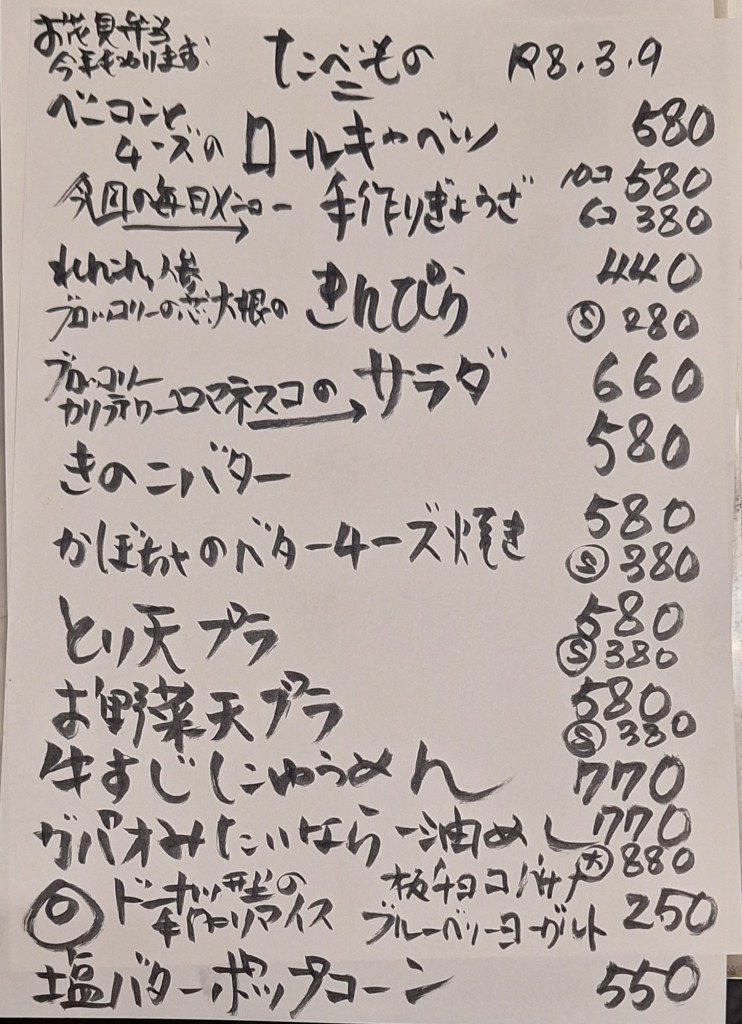 お花見弁当
今年もやります
たべもの
R8.3.9
ベーコンと
チーズの ロールキャベツ 580
今回の毎日メニュー 手作りぎょうざ 10コ 580
6コ 380
れんこん、人参
ブロッコリーの芯、大根の きんぴら 440
Ⓢ 280
ブロッコリー
カリフラワー ロマネスコの サラダ 660
きのこバター 580
かぼちゃのバターチーズ焼き 580
Ⓢ 380
とり天プラ 580
Ⓢ 380
お野菜天プラ 580
Ⓢ 380
牛すじにゅうめん 770
ガパオみたいなラー油めし 770
大 880
ドーナッツ型の
手作りアイス
板チョコバナナ
ブルーベリーヨーグルト 250
塩バターポップコーン 550